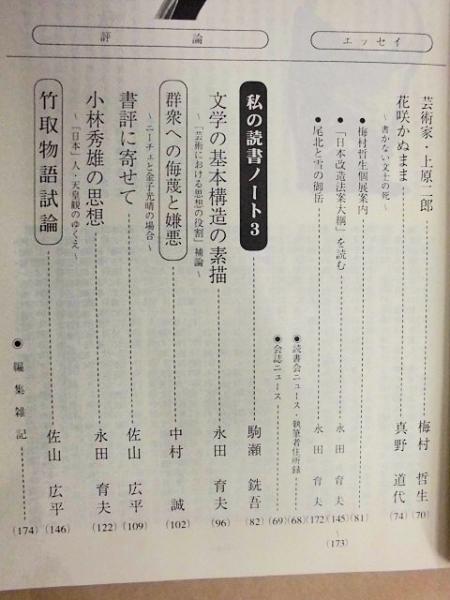 エッセイ
芸術家・上原二郎 梅村 哲生 (70)
花咲かぬまま 真野 道代 (74)
～書かない文士の死～
●梅村哲生個展案内 (81)
●「日本改造法案大綱」を読む 永田 育夫 (145)
●尾北と雪の御岳 永田 育夫 (172)～(173)
●読書会ニュース・執筆者住所録 (68)
●会誌ニュース (69)
評論
私の読書ノート3 駒瀬 銑吾 (82)
文学の基本構造の素描 永田 育夫 (96)
～「芸術における思想の役割」補論～
群衆への侮蔑と嫌悪 中村 誠 (102)
～ニーチェと金子光晴の場合～
書評に寄せて 佐山 広平 (109)
小林秀雄の思想 永田 育夫 (122)
～「日本」人・天皇観のゆくえ～
竹取物語試論 佐山 広平 (146)
●編集雑記 (174)